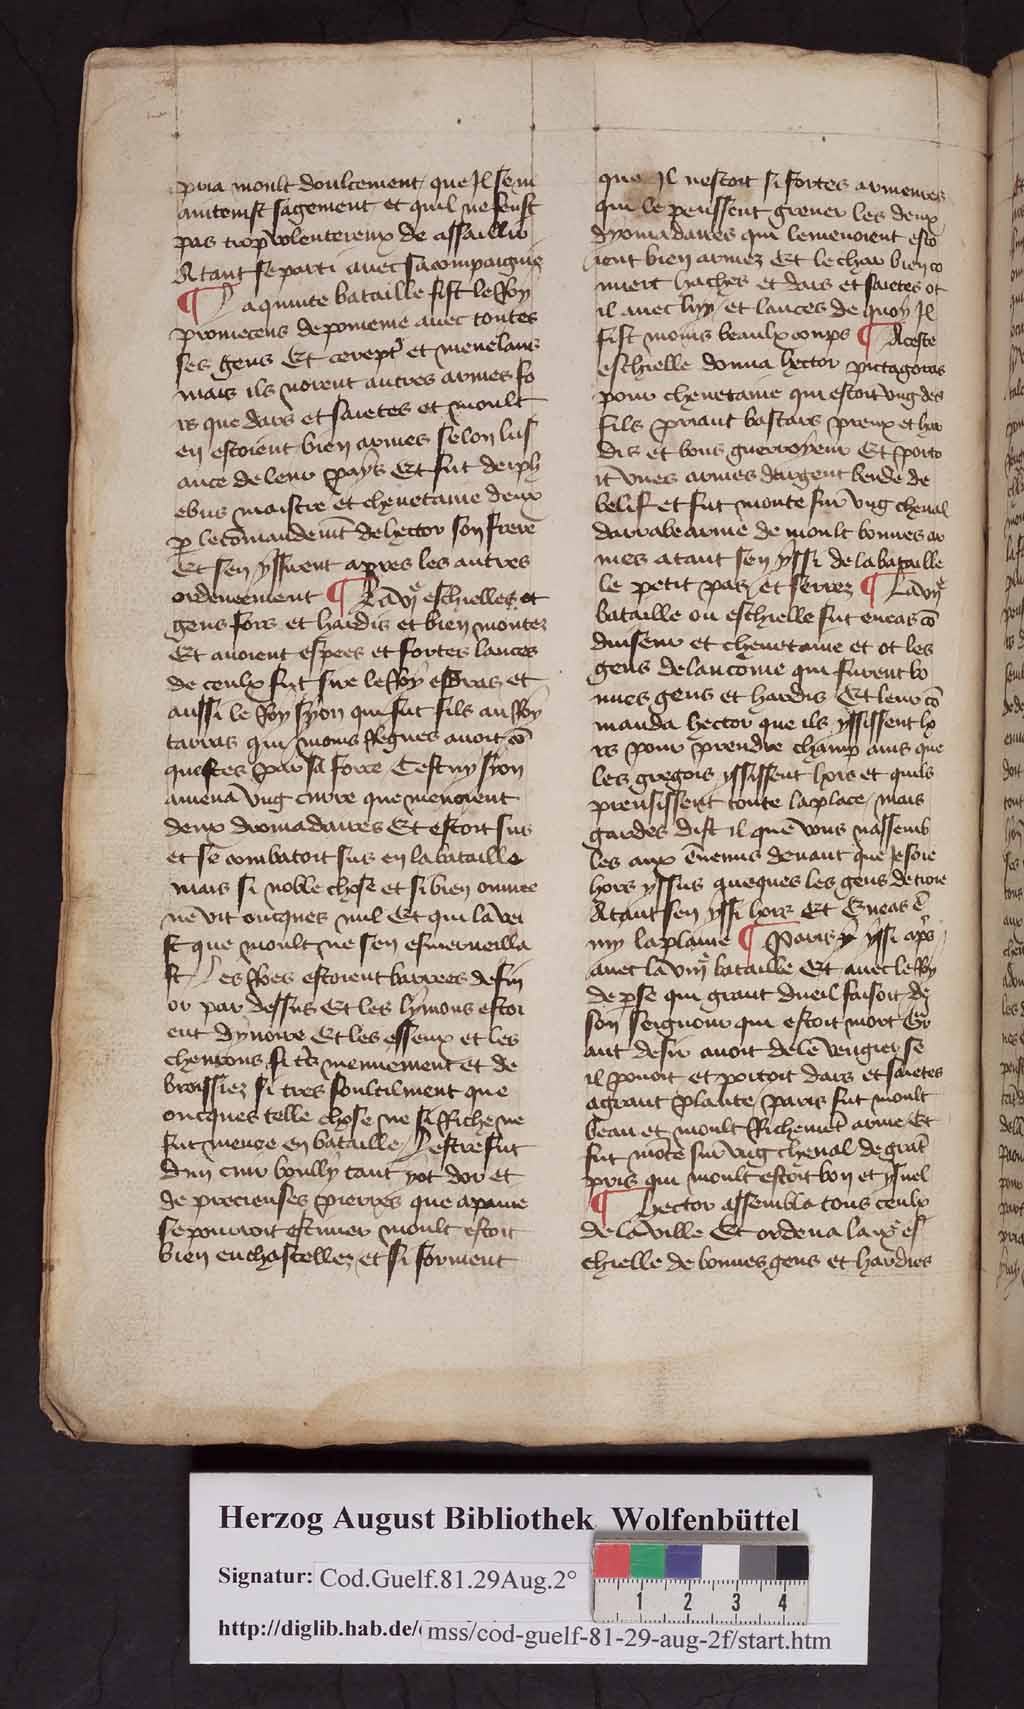 pria moult doulcement que Il se m
aintenist sagement et quil ne feust
pas trop volentereux de assaillir
Atant se parti auec sa compaignie
¶ La quinte bataille fist le Roy
promecens de pomeme auec toutes
ses gens Et cerept et menelaus
mais ils norent autres armes fo
rs que dars et saietes et moult
en estoient bien armes selon lus
ance de leur pays Et fut deiph
ebus maistre et cheuetaine deux
p le comandemt de hector son frere
Et sen yssirent apres les autres
ordeneement ¶ La vje eschielles ot
gens fors et hardis et bien montez
Et auoient espees et fortes lances
de ceulx fut sire le Roy esdras et
aussi le Roy fyon qui fut fils au Roy
tarras qui moins Regnes auoit co
questes par sa force Cestuy fyon
amena vng curre que menoient
deux dromadaires Et estoit sus
et se combatoit sus en la bataille
mais si noble chose et si bien ouuree
ne vit oncques nul Et qui la vei
st que moult ne sen esmerueilla
st Les Roes estoient barrees de fin
or par dessus Et les lymons estoi
ent dyuoire Et les esseux et les
cheurons si tres menuement et de
broissiez si tres soultilment que
oncques telle chose ne si Riche ne
fut menee en bataille Lestre fut
dun cuir boully tant yot dor et
de precieuses pierres que apaine
se pourroit estimer moult estoit
bien enchastellez et si forment
que Il nestoit si fortes armeures
qui le peussent greuer les deux
dyomadaires qui le menoient esto
ient bien armez Et le char bien co
uuert haches et dars et saietes ot
il auec luy et lances de quoy Il
fist moins beaulx coups ¶ Aceste
eschielle donna hector pictagoras
pour cheuetaine qui estoit vng des
fils priant bastars preux et har
dis et bons guerroyeur Et porto
it vnes armes dargent bende de
belif et fut monte sur vng cheual
darrabe arme de moult bonnes ar
mes atant sen yssi de la bataille
le petit pas et serrez ¶ La vije
bataille ou eschielle fut eneas co
duiseur et cheuetaine et ot les
gens delauconie qui furent bo
nnes gens et hardis Et leur co
manda hector que ils yssissent ho
rs pour prendre champ ains que
les gregois yssissent hors et quils
prensissent toute la place mais
gardes dist il que vous nassemb
les aux enemis deuant que Je soie
hors yssus auecques les gens de troie
Atant sen yssi hors Et Eneas e
my la plaine ¶ Paris yssi aps
auec la viije bataille Et auec le Roy
de pse qui grant dueil faisoit de
son seigneur qui estoit mort Gr
ant desir auoit de le vengier se
il pouoit et portoit dars et saietes
a grant plante paris fut moult
beau et moult Richemet arme Et
fut mote sur vng cheual de grat
pris qui moult estoit bon et ysnel
¶ hector assembla tous ceulx
de la ville Et ordena la xe es
chielle de bonnes gens et hardies
Herzog August Bibliothek Wolfenbüttel
Signatur: Cod.Guelf.81.29Aug.2°
1 2 3 4
http://diglib.hab.de/ mss/cod-guelf-81-29-aug-2f/start.htm